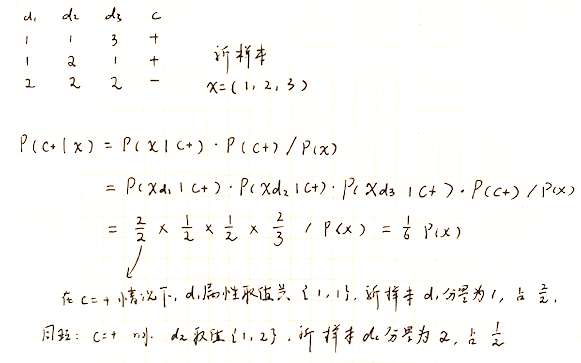 d₁ d₂ d₃ c
1 1 3 +
1 2 1 +
2 2 2 -
新样本
x=(1,2,3)
P(c+|x) = P(x|c+)·P(c+)/P(x)
= P(xd₁|c+)·P(xd₂|c+)·P(xd₃|c+)·P(c+)/P(x)
= 2/2 × 1/2 × 1/2 × 2/3 / P(x) = 1/6 P(x)
在c=+情况下,d₁属性取值共{1,1},新样本d₁分量为1,占2/2,
同理:c=+时,d₂取值{1,2},新样本d₂分量为2,占1/2